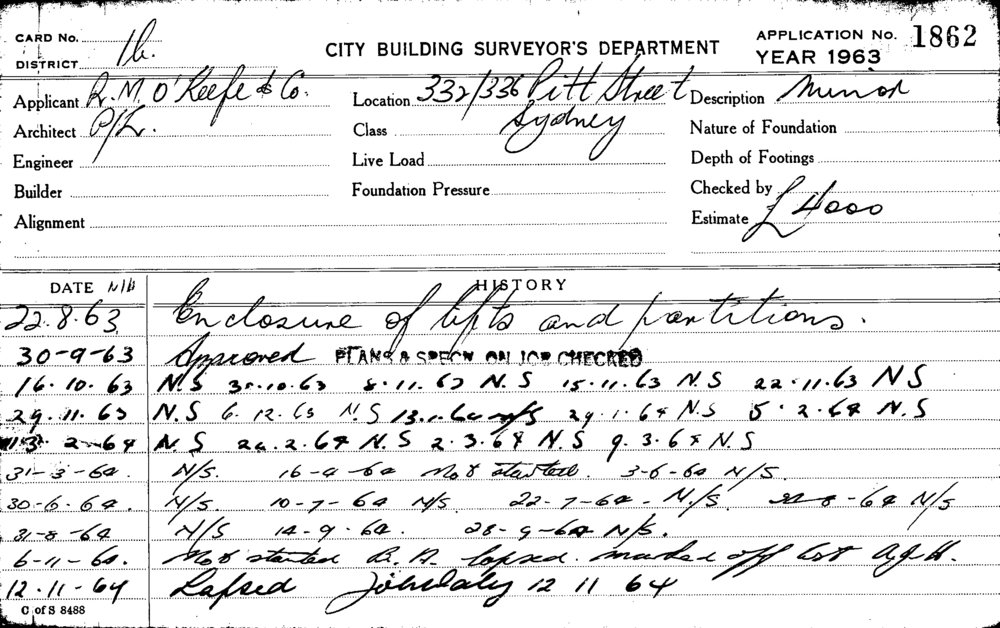 CARD No.
DISTRICT 1b.
CITY BUILDING SURVEYOR'S DEPARTMENT
APPLICATION No. 1862
YEAR 1963
Applicant R. M. O'Keefe & Co.
Location 332/336 Pitt Street
Description Minor
Architect P/L.
Class Sydney
Nature of Foundation
Engineer
Live Load
Depth of Footings
Builder
Foundation Pressure
Checked by
Alignment
Estimate £4000
DATE
HISTORY
22.8.63 Enclosure of lifts and partitions.
30-9-63 Approved PLANS & SPECN ON JOB CHECKED
16.10.63 N.S 31.10.63 8.11.63 N.S 15.11.63 N.S 22.11.63 N S
29.11.63 N.S 6.12.63 N.S 13.1.64 N/S 29.1.64 N.S 5.2.64 N.S
13.2-64 N.S 24.2.64 N.S 2.3.64 N.S 9.3.64 N.S
31-3-64. N/S. 16-4-64 Not started. 3-6-64 N/S.
30-6-64. N/S. 10-7-64 N/S. 22-7-64- N/S. 8-64 N/S
31-8-64 N/S 14-9-64. 28-9-64 N/S.
6-11-64. Not started B.A. lapsed. marked off list
12.11-64 Lapsed John Daly 12 11 64
C of S 8488